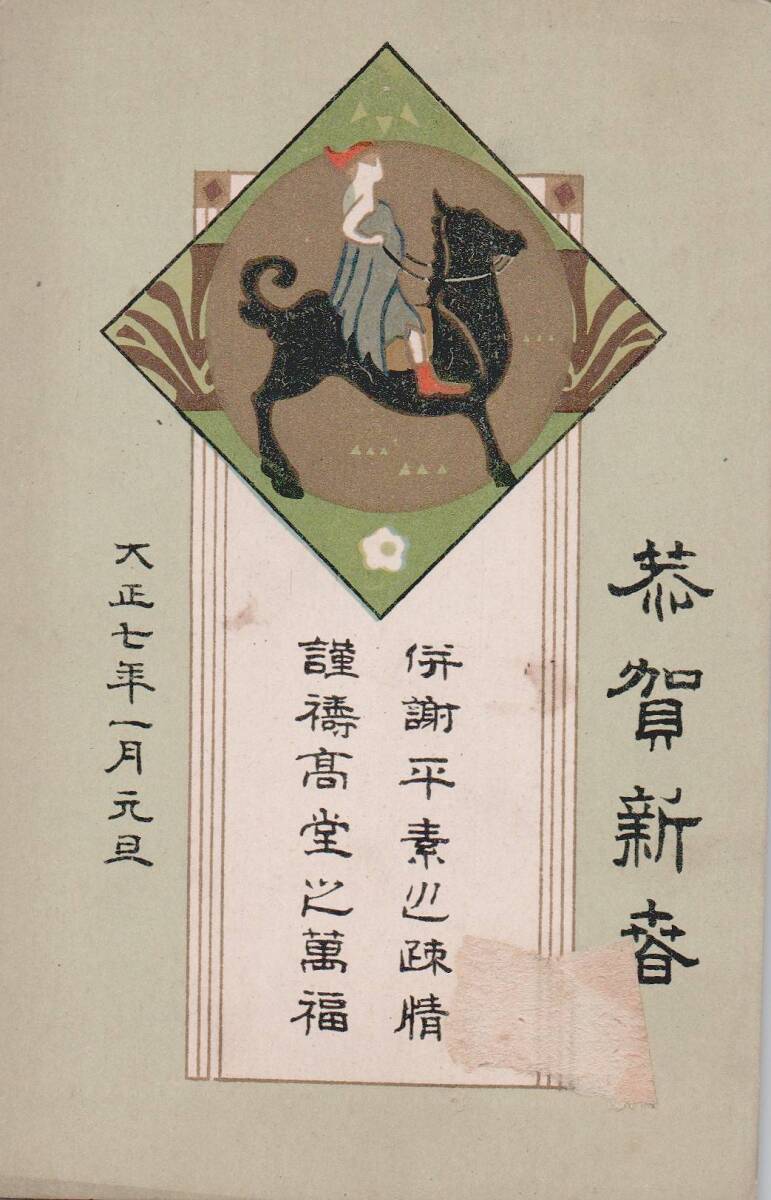 恭賀新春
併謝平素之疎情
謹禱高堂之萬福
大正七年一月元旦